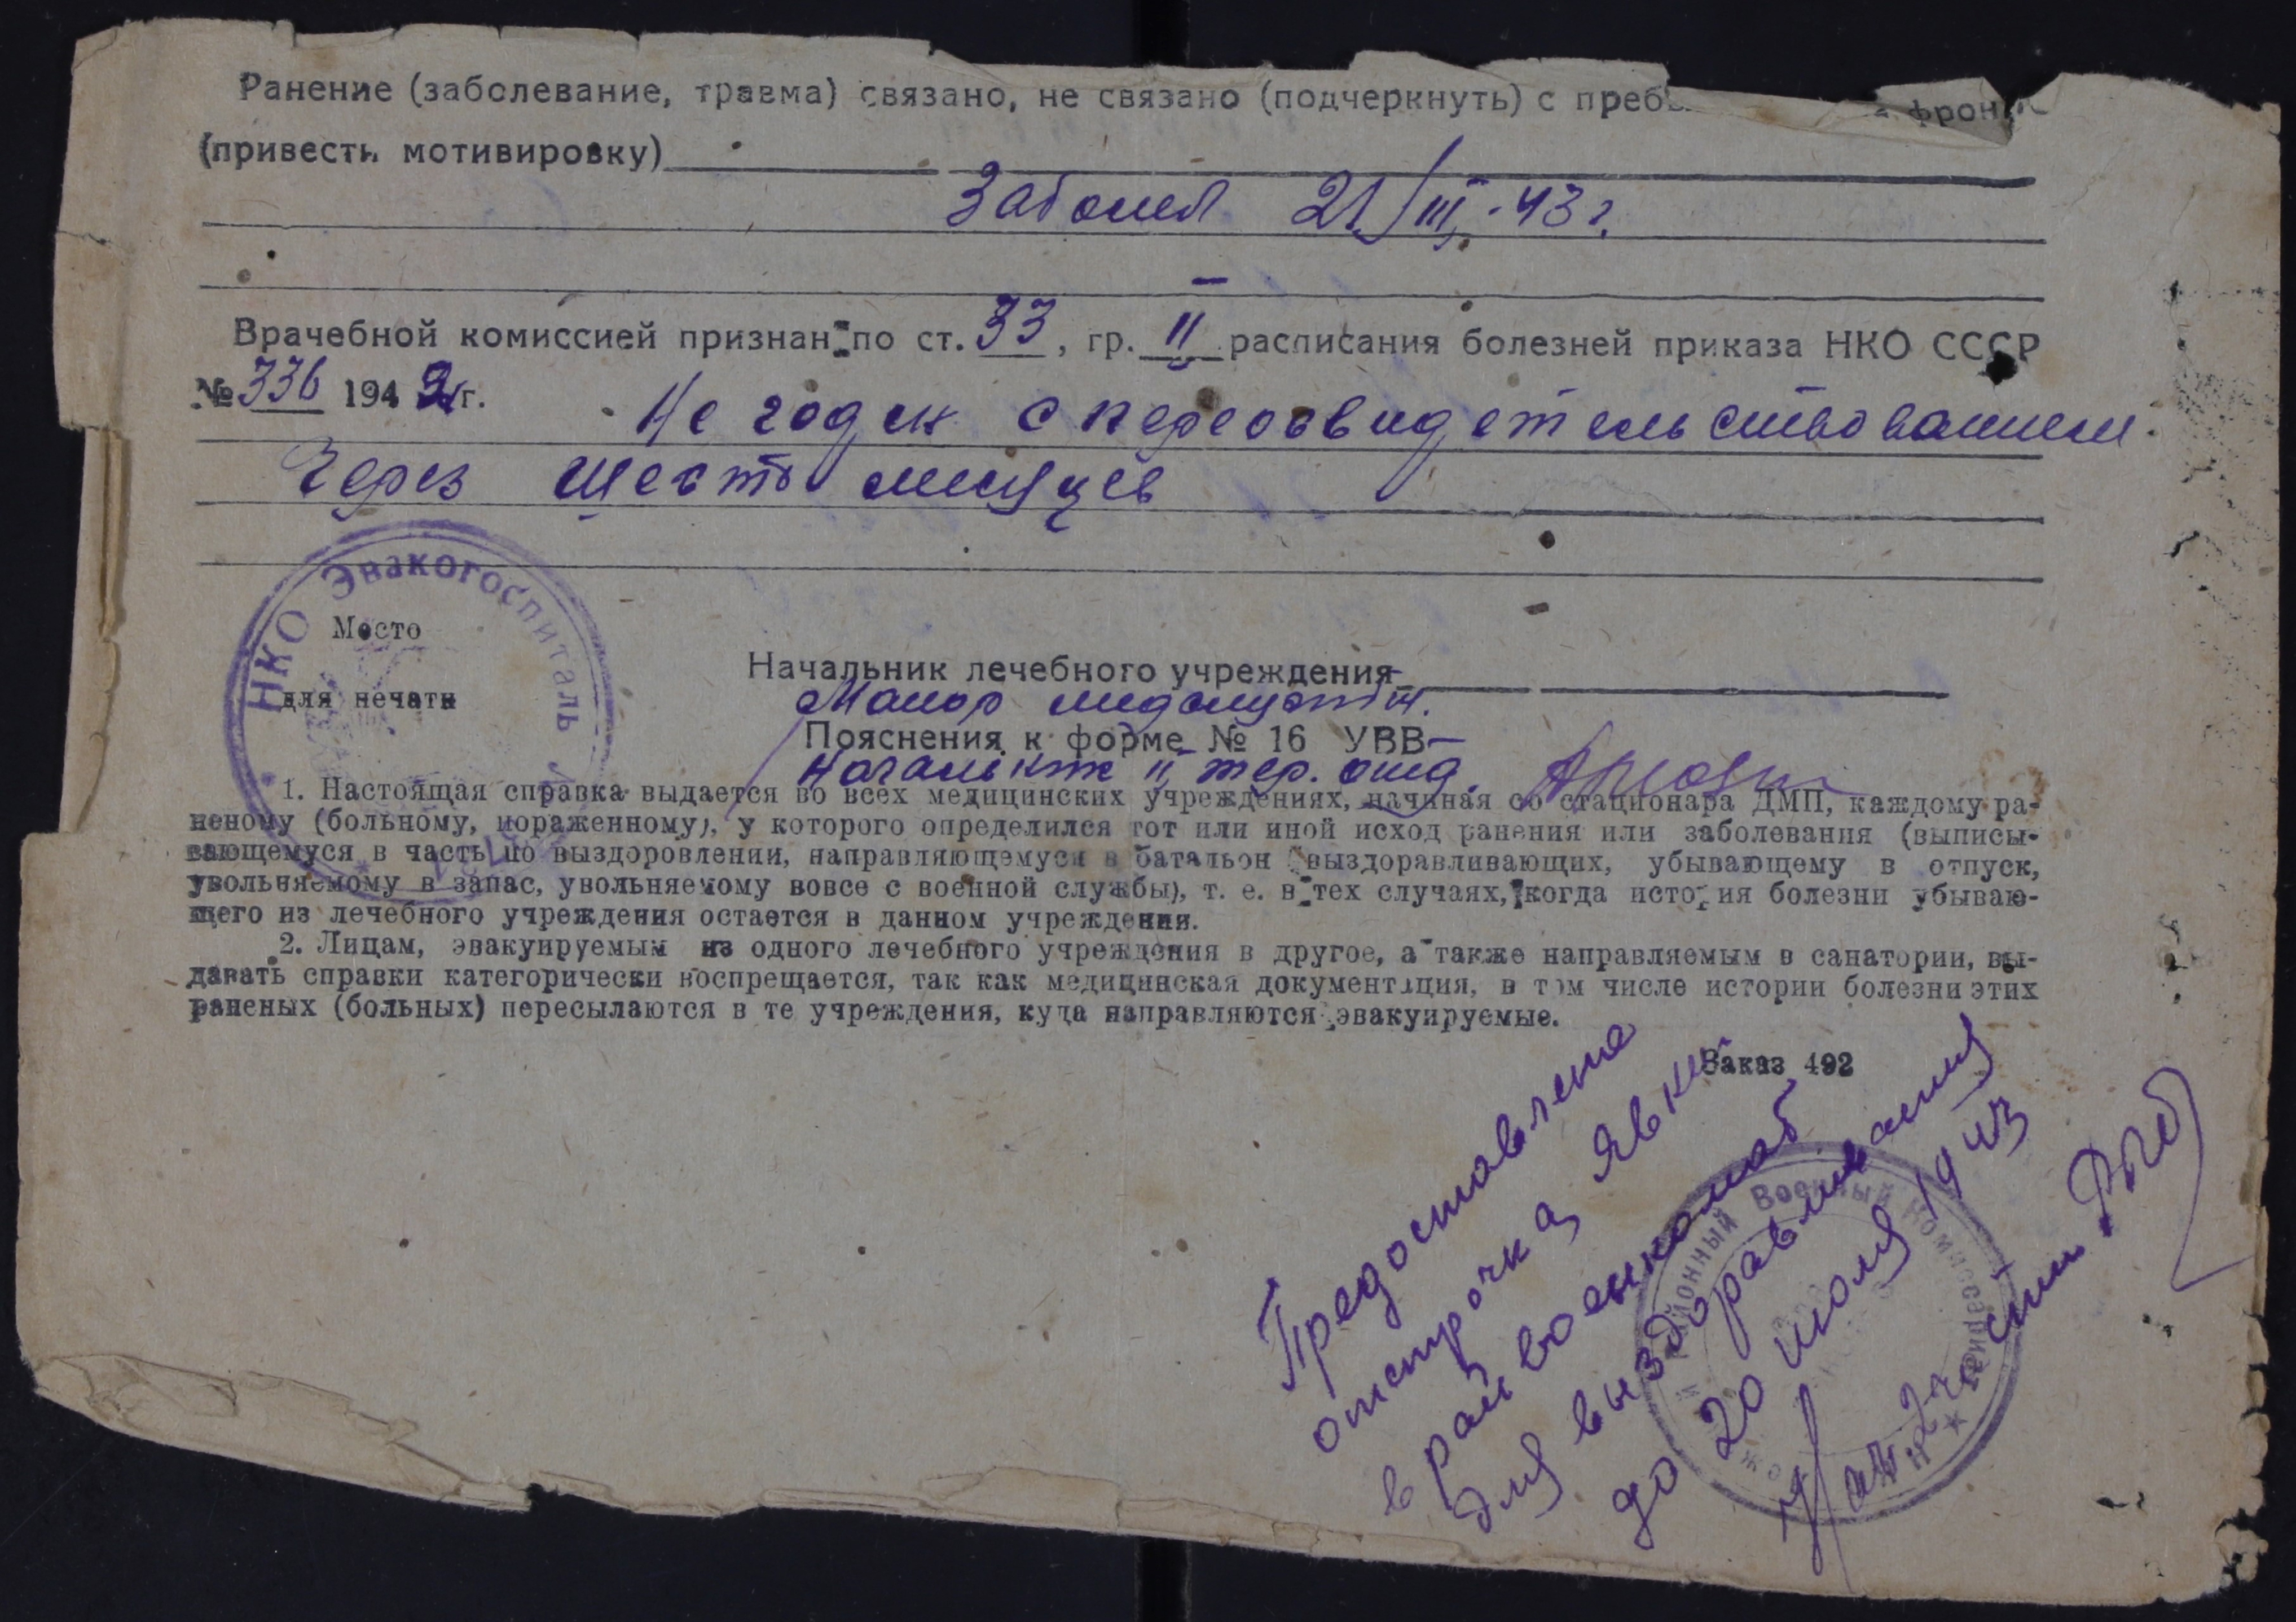 Ранение (заболевание, травма) связано, не связано (подчеркнуть) с фрон
(привести мотивировку)
Заболел 21/III-43 г.
Врачебной комиссией признан по ст. 33, гр. II расписания болезней приказа НКО СССР
№ 336 1942 г. Не годен с переосвидетельствованием
через шесть месяцев
НКО Эвакогоспиталь
Место
для печати
Начальник лечебного учреждения
Майор медслужбы
Пояснения к форме № 16 УВВ
Начальник II тер. отд.
1. Настоящая справка выдается во всех медицинских учреждениях, начиная со стационара ДМП, каждому ра-
неному (больному, пораженному), у которого определился тот или иной исход ранения или заболевания (выписы-
вающемуся в часть по выздоровлении, направляющемуся в батальон выздоравливающих, убывающему в отпуск,
увольняемому в запас, увольняемому вовсе с военной службы), т. е. в тех случаях, когда история болезни убываю-
щего из лечебного учреждения остается в данном учреждении.
2. Лицам, эвакуируемым из одного лечебного учреждения в другое, а также направляемым в санатории, вы-
давать справки категорически воспрещается, так как медицинская документация, в том числе истории болезни этих
раненых (больных) пересылаются в те учреждения, куда направляются эвакуируемые.
Заказ 492
Предоставлена
отстрочка явки
в райвоенкомат
для выздоравливания
до 20 июля 1943
Нач. 2 части
районный Военный Комиссариат